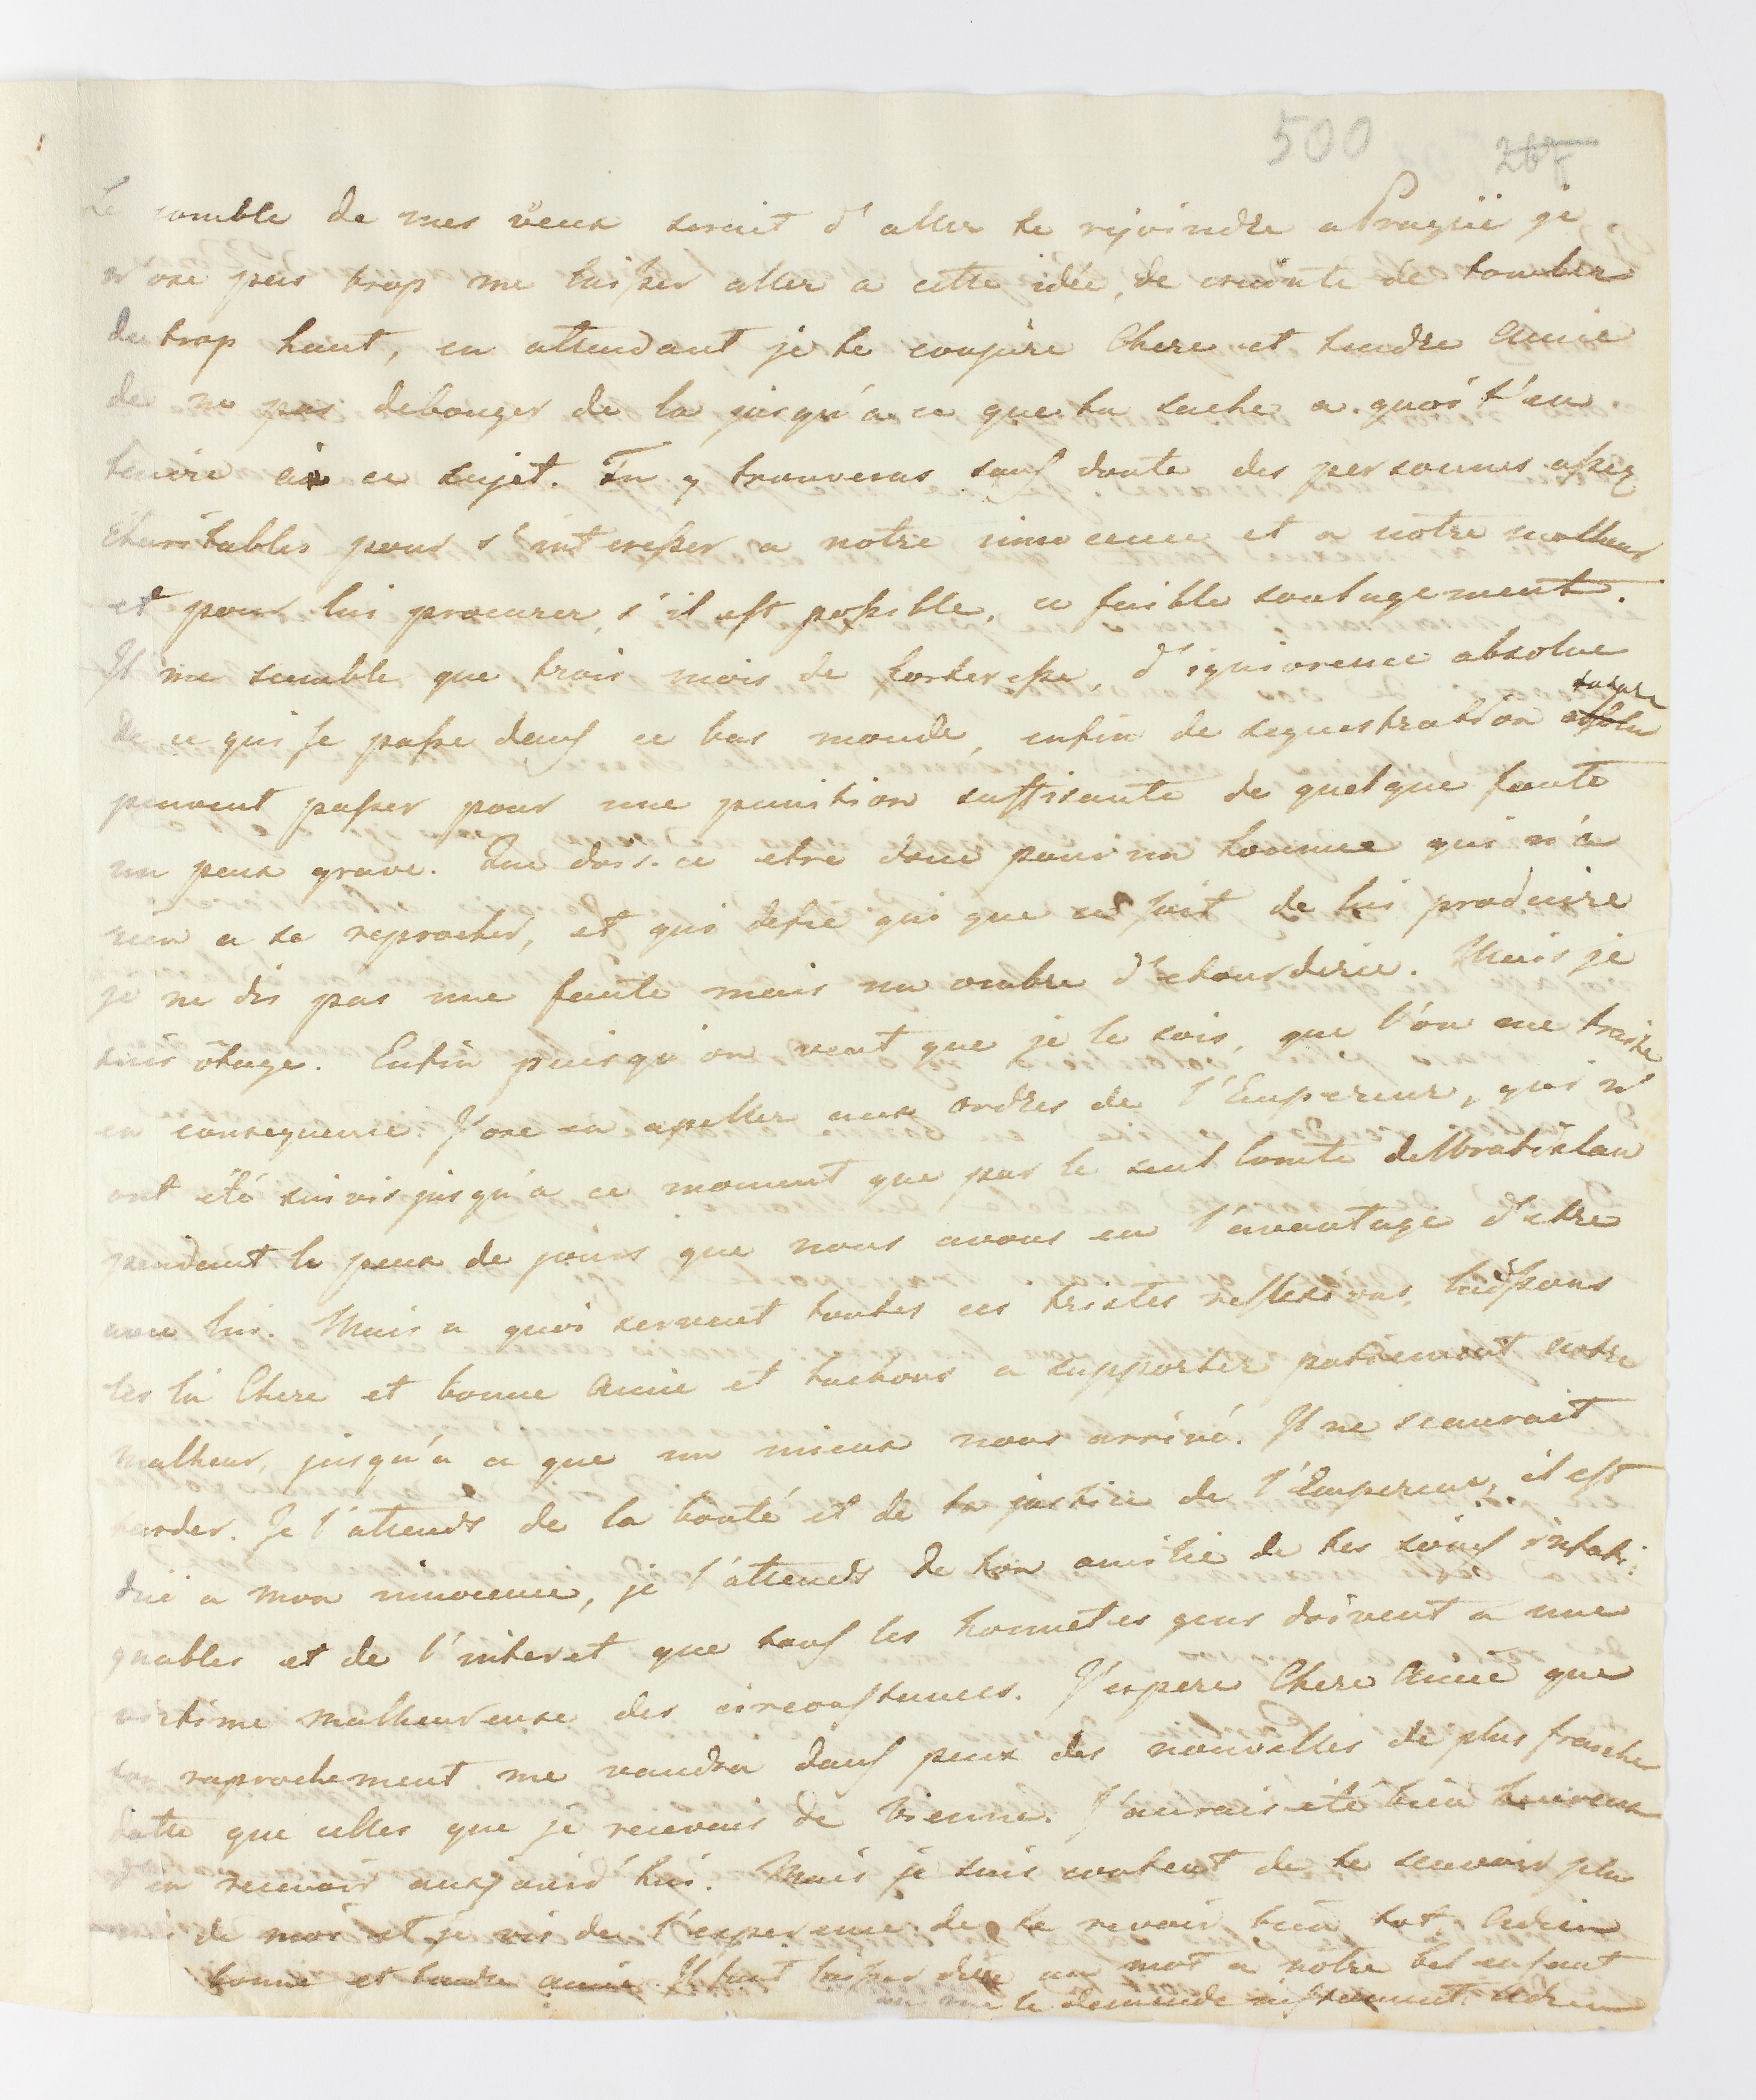 500 267
Le comble de mes vœux serait d'aller te rejoindre a Prague je
n'ose pas trop me laisser aller a cette idée, de crainte de tomber
de trop haut, en attendant je te conjure Chere et tendre Amie
de ne pas debouger de la jusqu'a ce que tu sache a quoi t'en
tenire a ce sujet. Tu y trouveras sans doute des personnes assez
charitables pour s'interesser a notre innocence et a notre malheur
et pour lui procurer, s'il est possible, ce faible soulagement.
Il me semble que trois mois de forteresse, d'ignorence absolue
de ce qui se passe dans ce bas monde, enfin de sequestration totale
peuvent passer pour une punition suffisante de quelque faute
un peux grave. Que dois-ce etre donc pour un homme qui n'a
rien a se reprocher, et qui defie qui que ce soit de lui produire
je ne dis pas une faute mais un ombre d'etourderie. Mais je
suis ôtage. Enfin puisqu'on veut que je le sois, que l'on me traite
en consequence. J'ose en apeller aux ordres de l'Empereur, qui n'
ont été suivis jusqu'a ce moment que par le seul Comte de Wratislau
pendant le peux de jours que nous avons eu l'avantage d'etre
avec lui. Mais a quoi servent toutes ces tristes reflexions, laissons
les la Chere et bonne Amie et tachons a supporter patiemment notre
malheur, jusqu'a ce que un mieux nous arrive. Il ne scaurait
tarder. Je l'attends de la bonté et de la justice de l'Empereur, il est
due a mon innocence, je l'attends de ton amitie de tes soins infati:
guables et de l'interet que tous les honnetes gens doivent a une
victime malheureuse des circonstances. J'espere Chere Amie que
ton raprochement me vaudra dans peux des nouvelles de plus fraiche
datte que celles que je recevais de Vienne. J'aurais été bien heureux
d'en recevoir aujourd'hui. Mais je suis content de te scavoir plus
de moi et je vis de l'esperence de te revoir bien tot. Adieu
bonne et tendre amie. Il faut laisser dire un mot a notre bel enfant
on me le demande instamment. Adieu